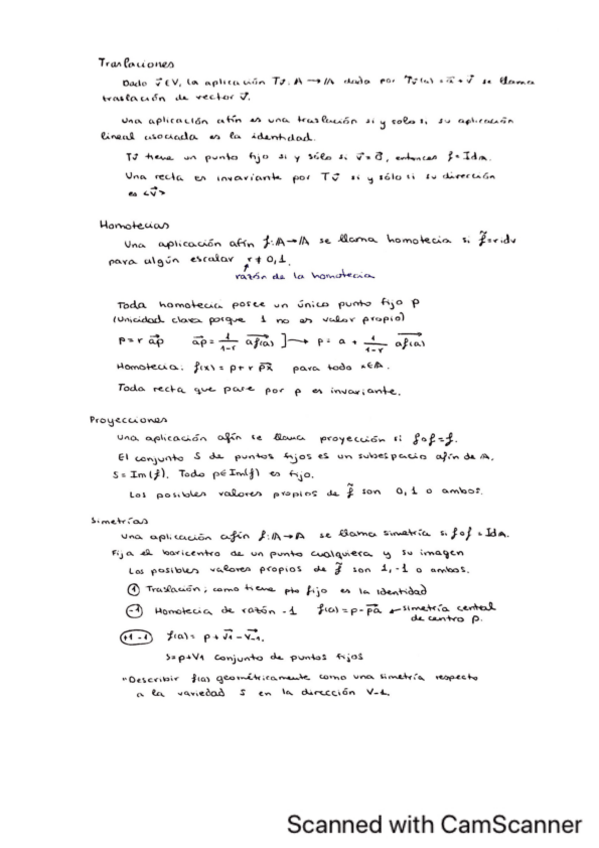 Traslaciones
Dado v⃗ ∈ V, la aplicación Tv⃗: A → A dada por Tv⃗(a) = a + v⃗ se llama
traslación de vector v⃗.
Una aplicación afín es una traslación si y solo si su aplicación
lineal asociada es la identidad.
Tv⃗ tiene un punto fijo si y sólo si v⃗ = 0⃗, entonces f = Id_A.
Una recta es invariante por Tv⃗ si y sólo si su dirección
es <v⃗>
Homotecias
Una aplicación afín f: A → A se llama homotecia si f⃗ = r idv
para algún escalar r ≠ 0,1.
razón de la homotecia
Toda homotecia posee un único punto fijo p
(Unicidad clara porque 1 no es valor propio)
p = r ap⃗ ap⃗ = 1/(1-r) af(a)⃗ ] → p = a + 1/(1-r) af(a)⃗
Homotecia: f(x) = p + r px⃗ para todo x ∈ A.
Toda recta que pase por p es invariante.
Proyecciones
Una aplicación afín se llama proyección si f∘f = f.
El conjunto S de puntos fijos es un subespacio afín de A.
S = Im(f). Todo p ∈ Im(f) es fijo.
Los posibles valores propios de f⃗ son 0, 1 o ambos.
Simetrías
Una aplicación afín f: A → A se llama simetría si f∘f = Id_A.
Fija el baricentro de un punto cualquiera y su imagen
Los posibles valores propios de f⃗ son 1, -1 o ambos.
① Traslación; como tiene pto fijo es la identidad
(-1) Homotecia de razón -1 f(a) = p - pa⃗ ← simetría central
de centro p.
(+1 -1) f(a) = p + v⃗1 - v⃗-1.
S = p + V1 conjunto de puntos fijos
"Describir f(a) geométricamente como una simetría respecto
a la variedad S en la dirección V-1.
Scanned with CamScanner